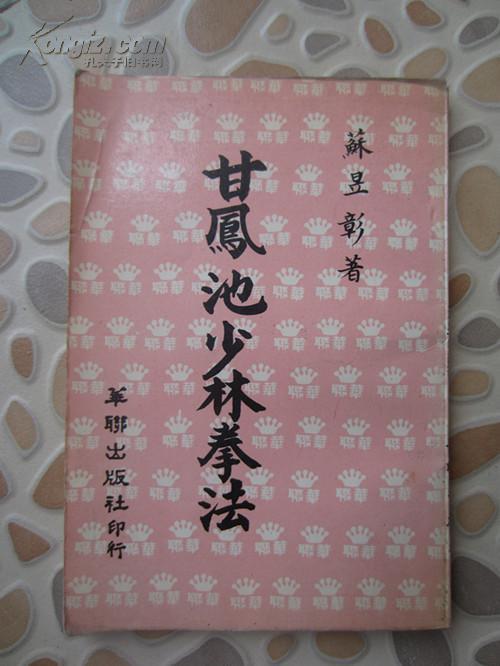 Kongfz.com
孔夫子旧书网
蘇昱彰著
甘鳳池少林拳法
華聯出版社印行